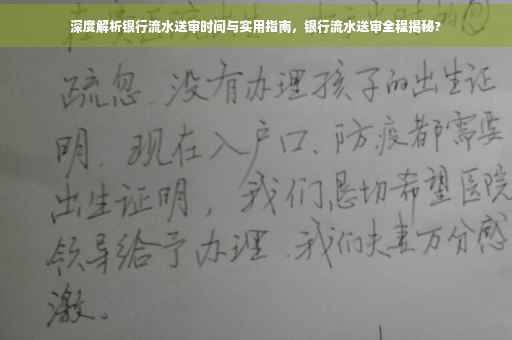 深度解析银行流水送审时间与实用指南，银行流水送审全程揭秘？
疏忽、没有办理孩子的出生证
明、现在入户口、防疫都需要
出生证明，我们恳切希望医院
领导给予办理、我们夫妻万分感
激。